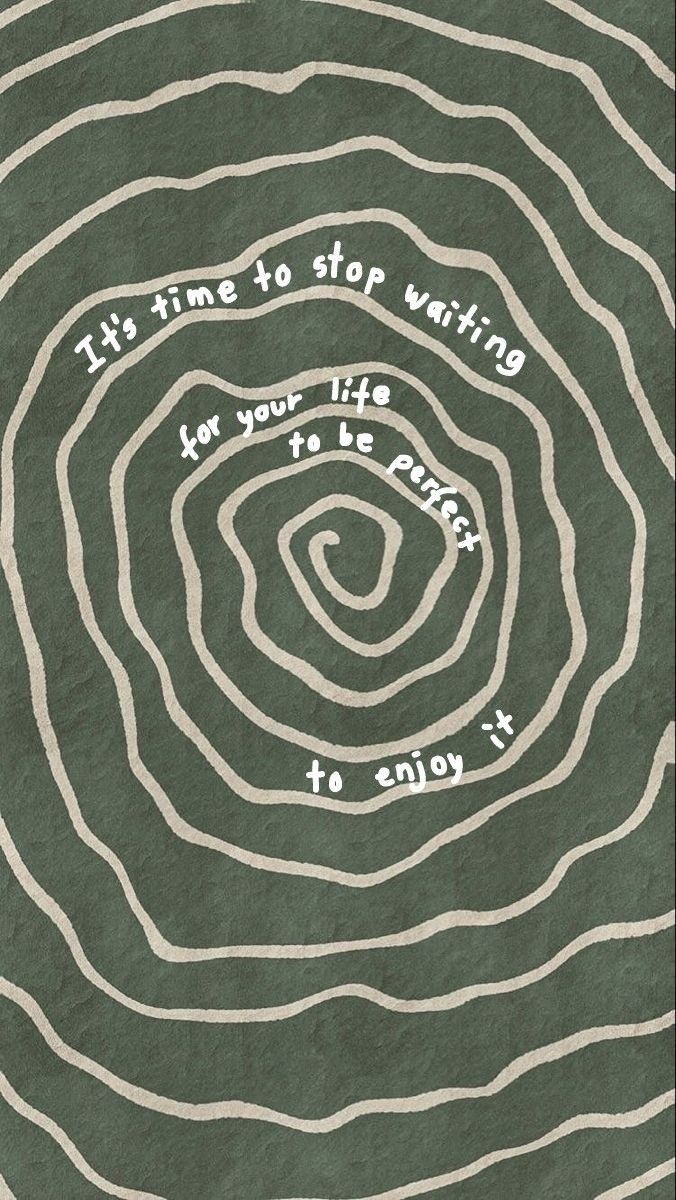 It's time to stop waiting
for your life
to be perfect
to enjoy it